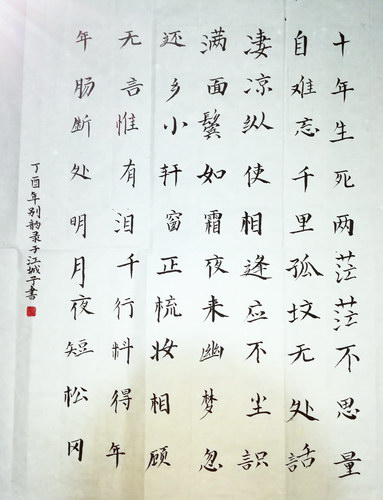 十年生死两茫茫不思量
自难忘千里孤坟无处話
凄凉纵使相逢应不尘識
满面鬓如霜夜来幽梦忽
还乡小轩窗正梳妆相顾
无言惟有泪千行料得年
年肠断处明月夜短松冈
丁酉年别韵录于江城子書